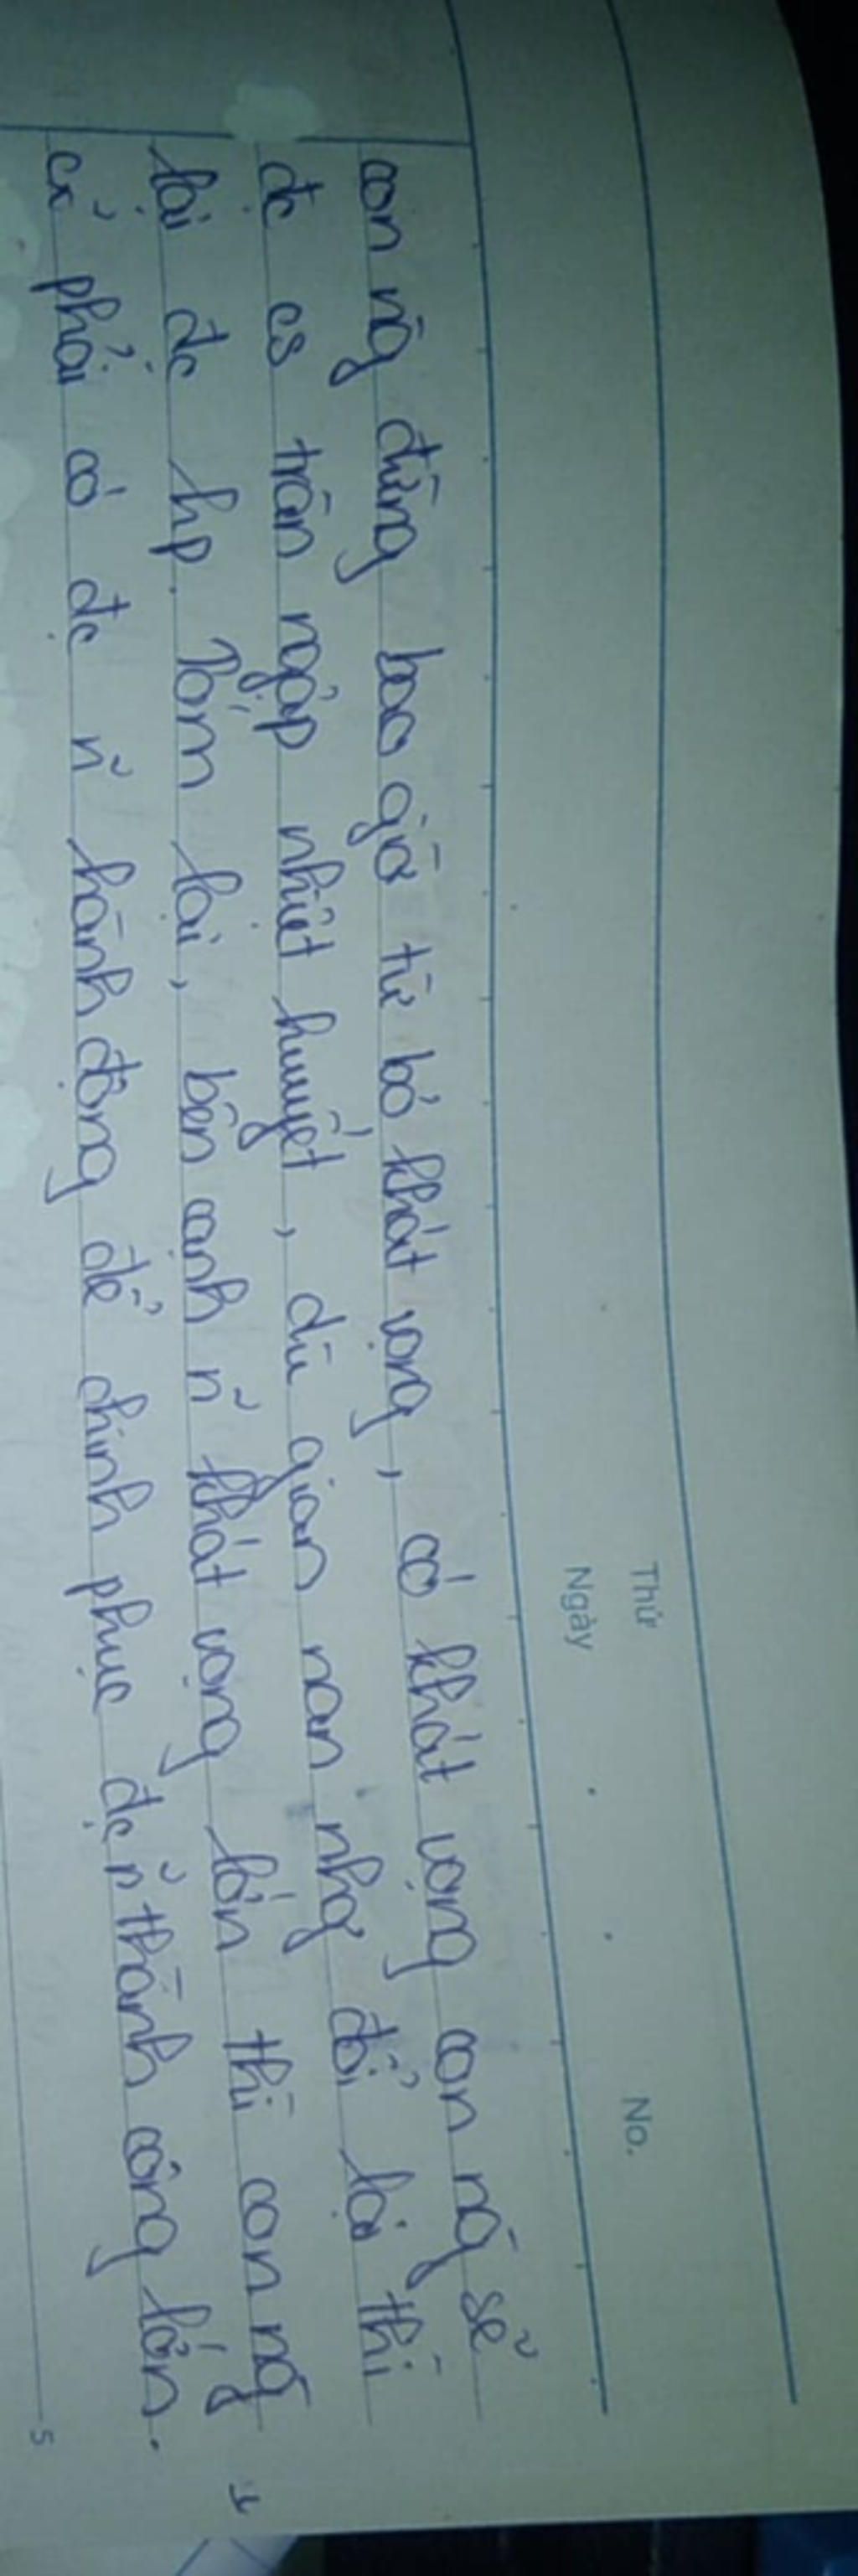 Thứ
Ngày
No.
con ng̀ đừng bao giờ từ bỏ khát vọng, có khát vọng con ng̀ sẽ
đc cs tràn ngập nhiệt huyết, dù gian nan nhg đổi lại thì
lại đc hp. Tóm lại, bên cạnh n~ khát vọng lớn thì con ng̀
cx phải có đc n~ hành động để chinh phục đc n~ thành công lớn.
5